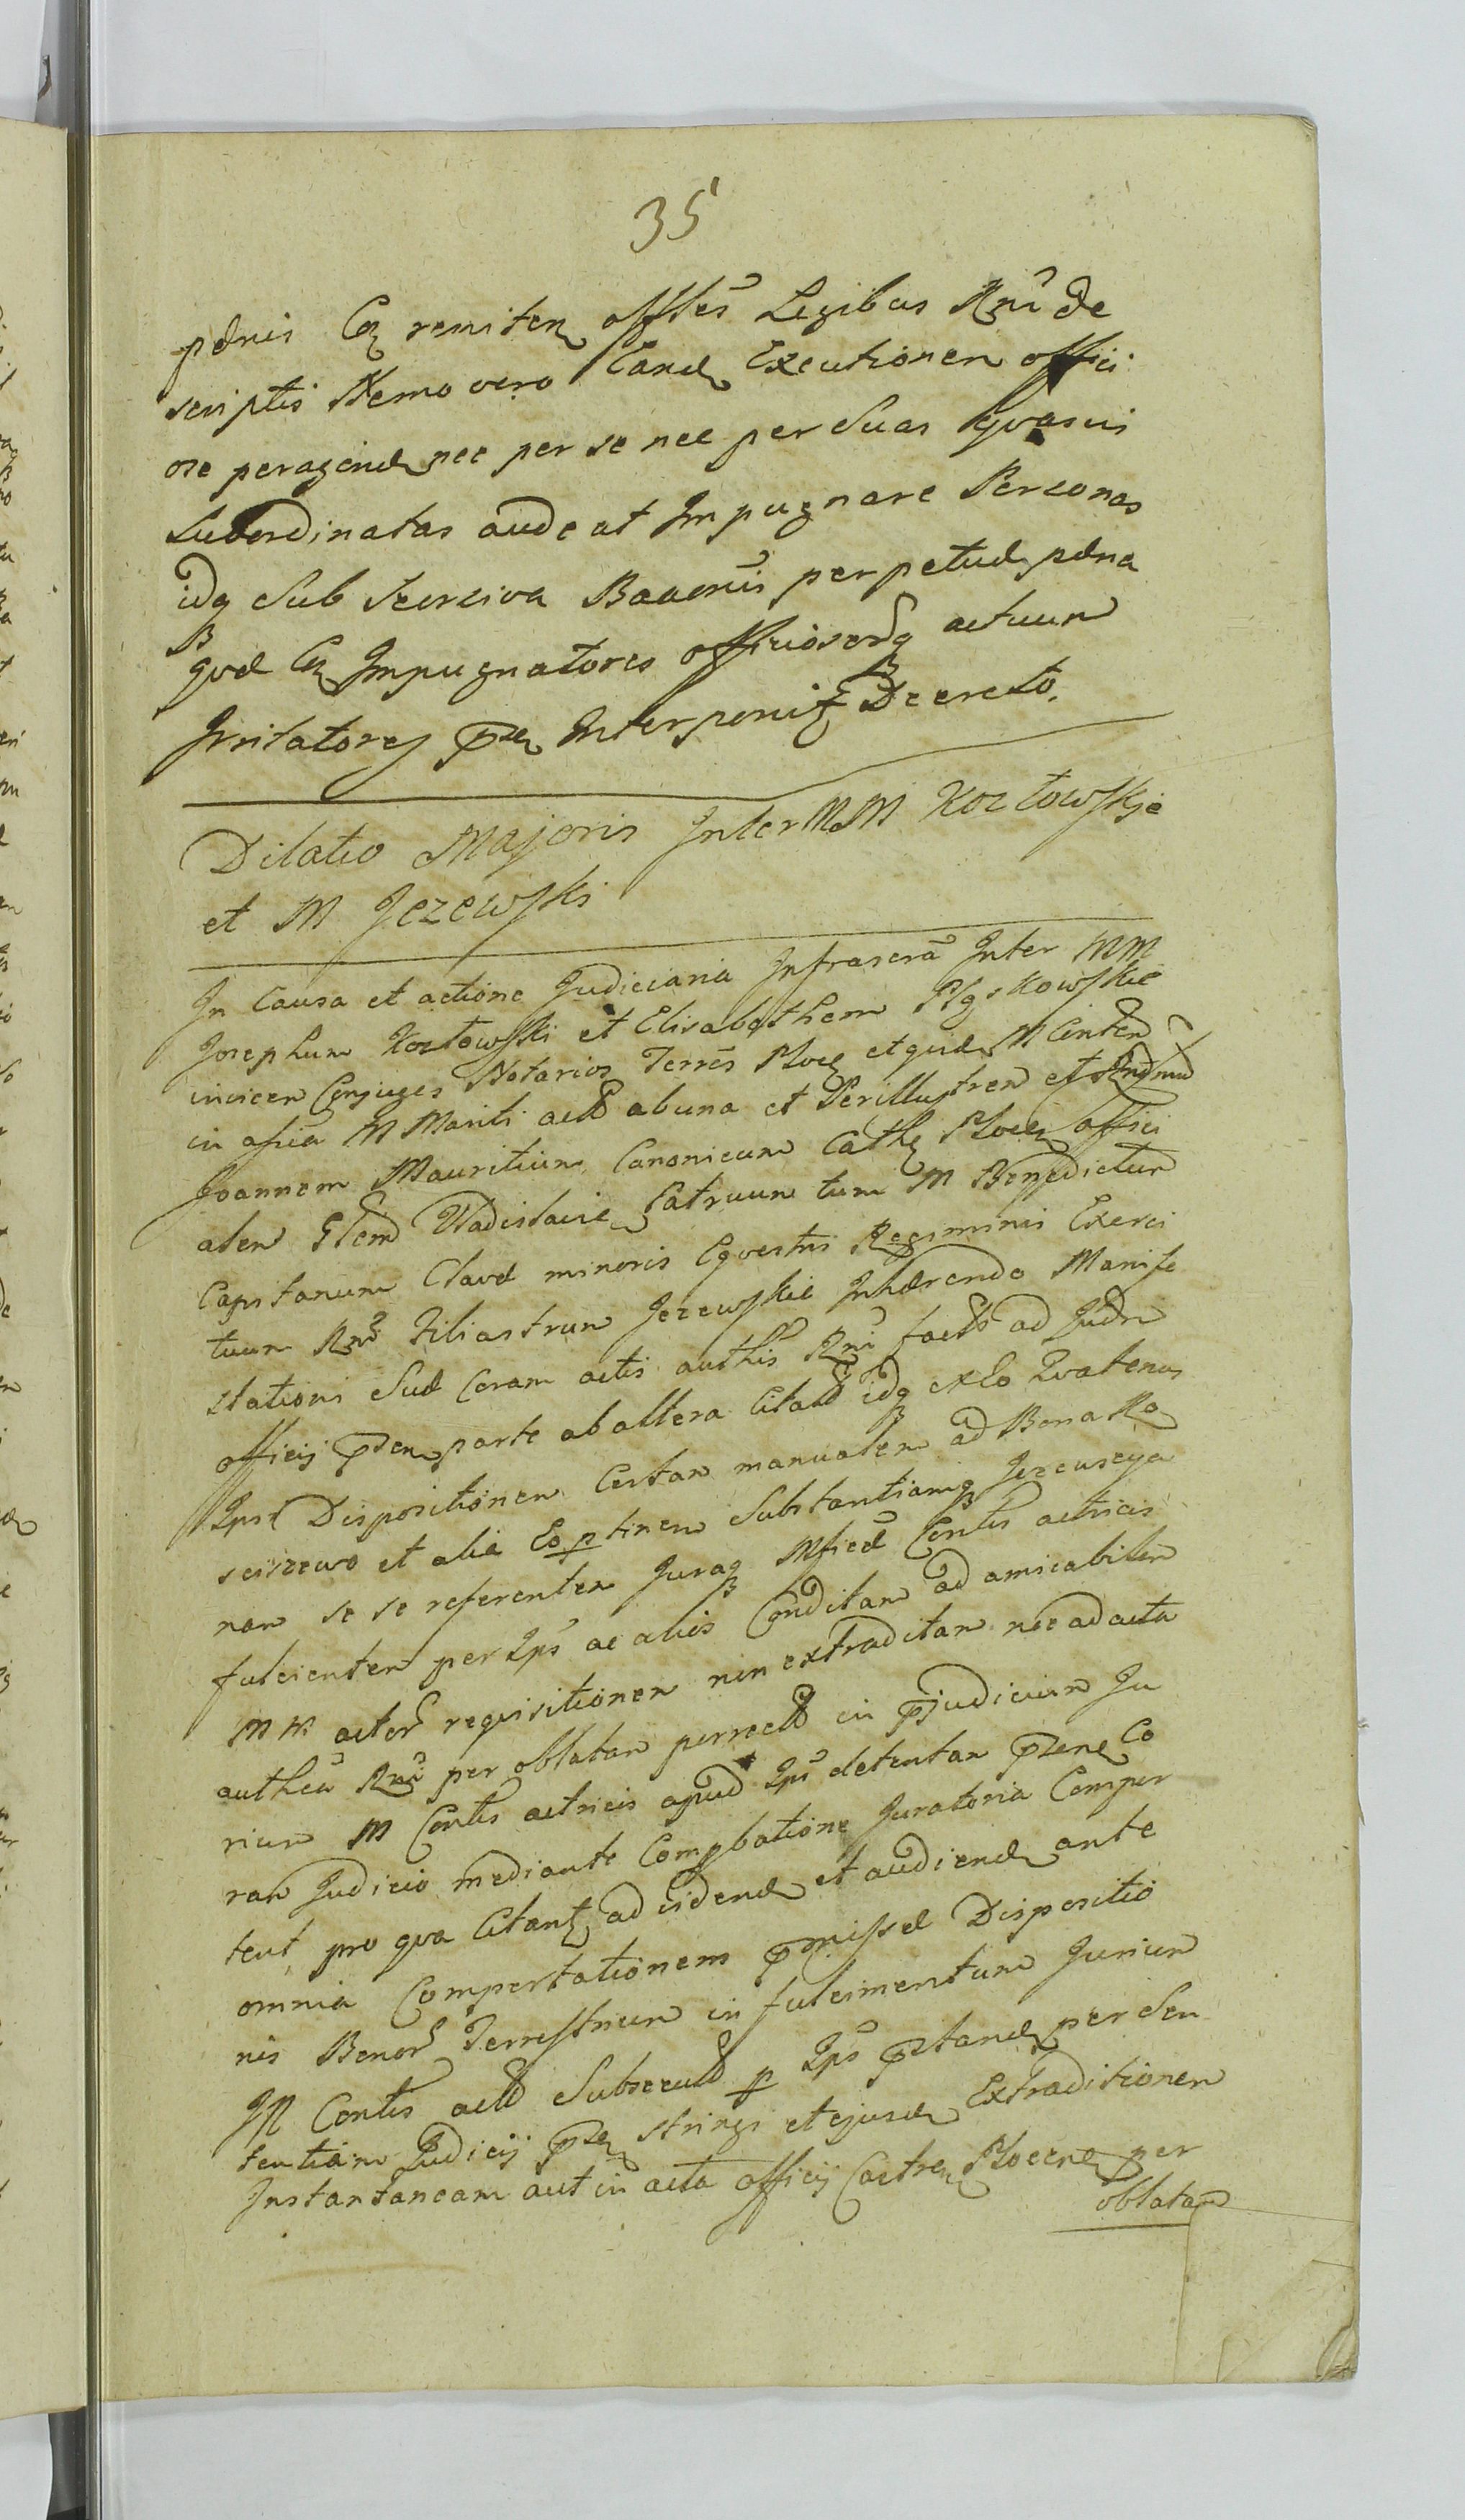 35
pdnis Cq remiten offles Legibus Rni de
scriptis Nemo vero Eand Executionem offici
ose peragend nec per se nec per Suas qvascis
Subordinatas audeat Impugnare Personas
idq Sub secreciva Bannis perpetud pdna
qvd Cq Impugnatores officiosorq actuum
Irritatores pse Interponit Decreto.
Dilatio Majoris Inter MM Kozłowskie
et M Jezewski
In Causa et actione Judiciaria Infrascra Inter MM
Josephum Kozłowski et Elisabetham Kowskie
invicem Conjuges Notarios Terres Ploc et qvd M Conten
in assia M Mariti actt ab una et Perillustrem et Rndmu
Joannem Mauritium Canonicum Cathe Plocen offici
alem Glem Vladislavie Patruum tum M Benedictum
Capitaneum Clavd minoris Eqvestris Regiminis Exerci
tuum Rni Filiastrum Jezewskie Inhærendo Manife
stationi Sud Coram actis authis Rni factt ad Judm
officij psen parte ab altera Citatt idq ex Eo Qvatenus
Ipsi Dispositionem Certam manualem ad Bona Ko
sciszewo et alia Eo ptinen Substantiamq Jezewscya
nam se se referentem Juraq Mficd Contis actricis
fulcientem per Ips ac aliis Conditam ad amicabilem
MM actor requisitionem non extraditam nec ad acta
authen Rni per oblatam perrectt in pjudicium Ju
rium M Contis actricis apud Ips detentam psene Co
ram Judicio mediante Compbatione Juratoria Compor
tent pro qva Citant ad vidend et audiend ante
omnia Comportationem pmissd Dispositio
nis Benor Terrestrium in fulcimentum Jurium
M Contis actt Subsecutt p Ips pstand per Sen
tentiam Judicij pse stringi et ejusd Extraditionem
Instantaneam aut in acta officij Castren Plocen per
oblatam